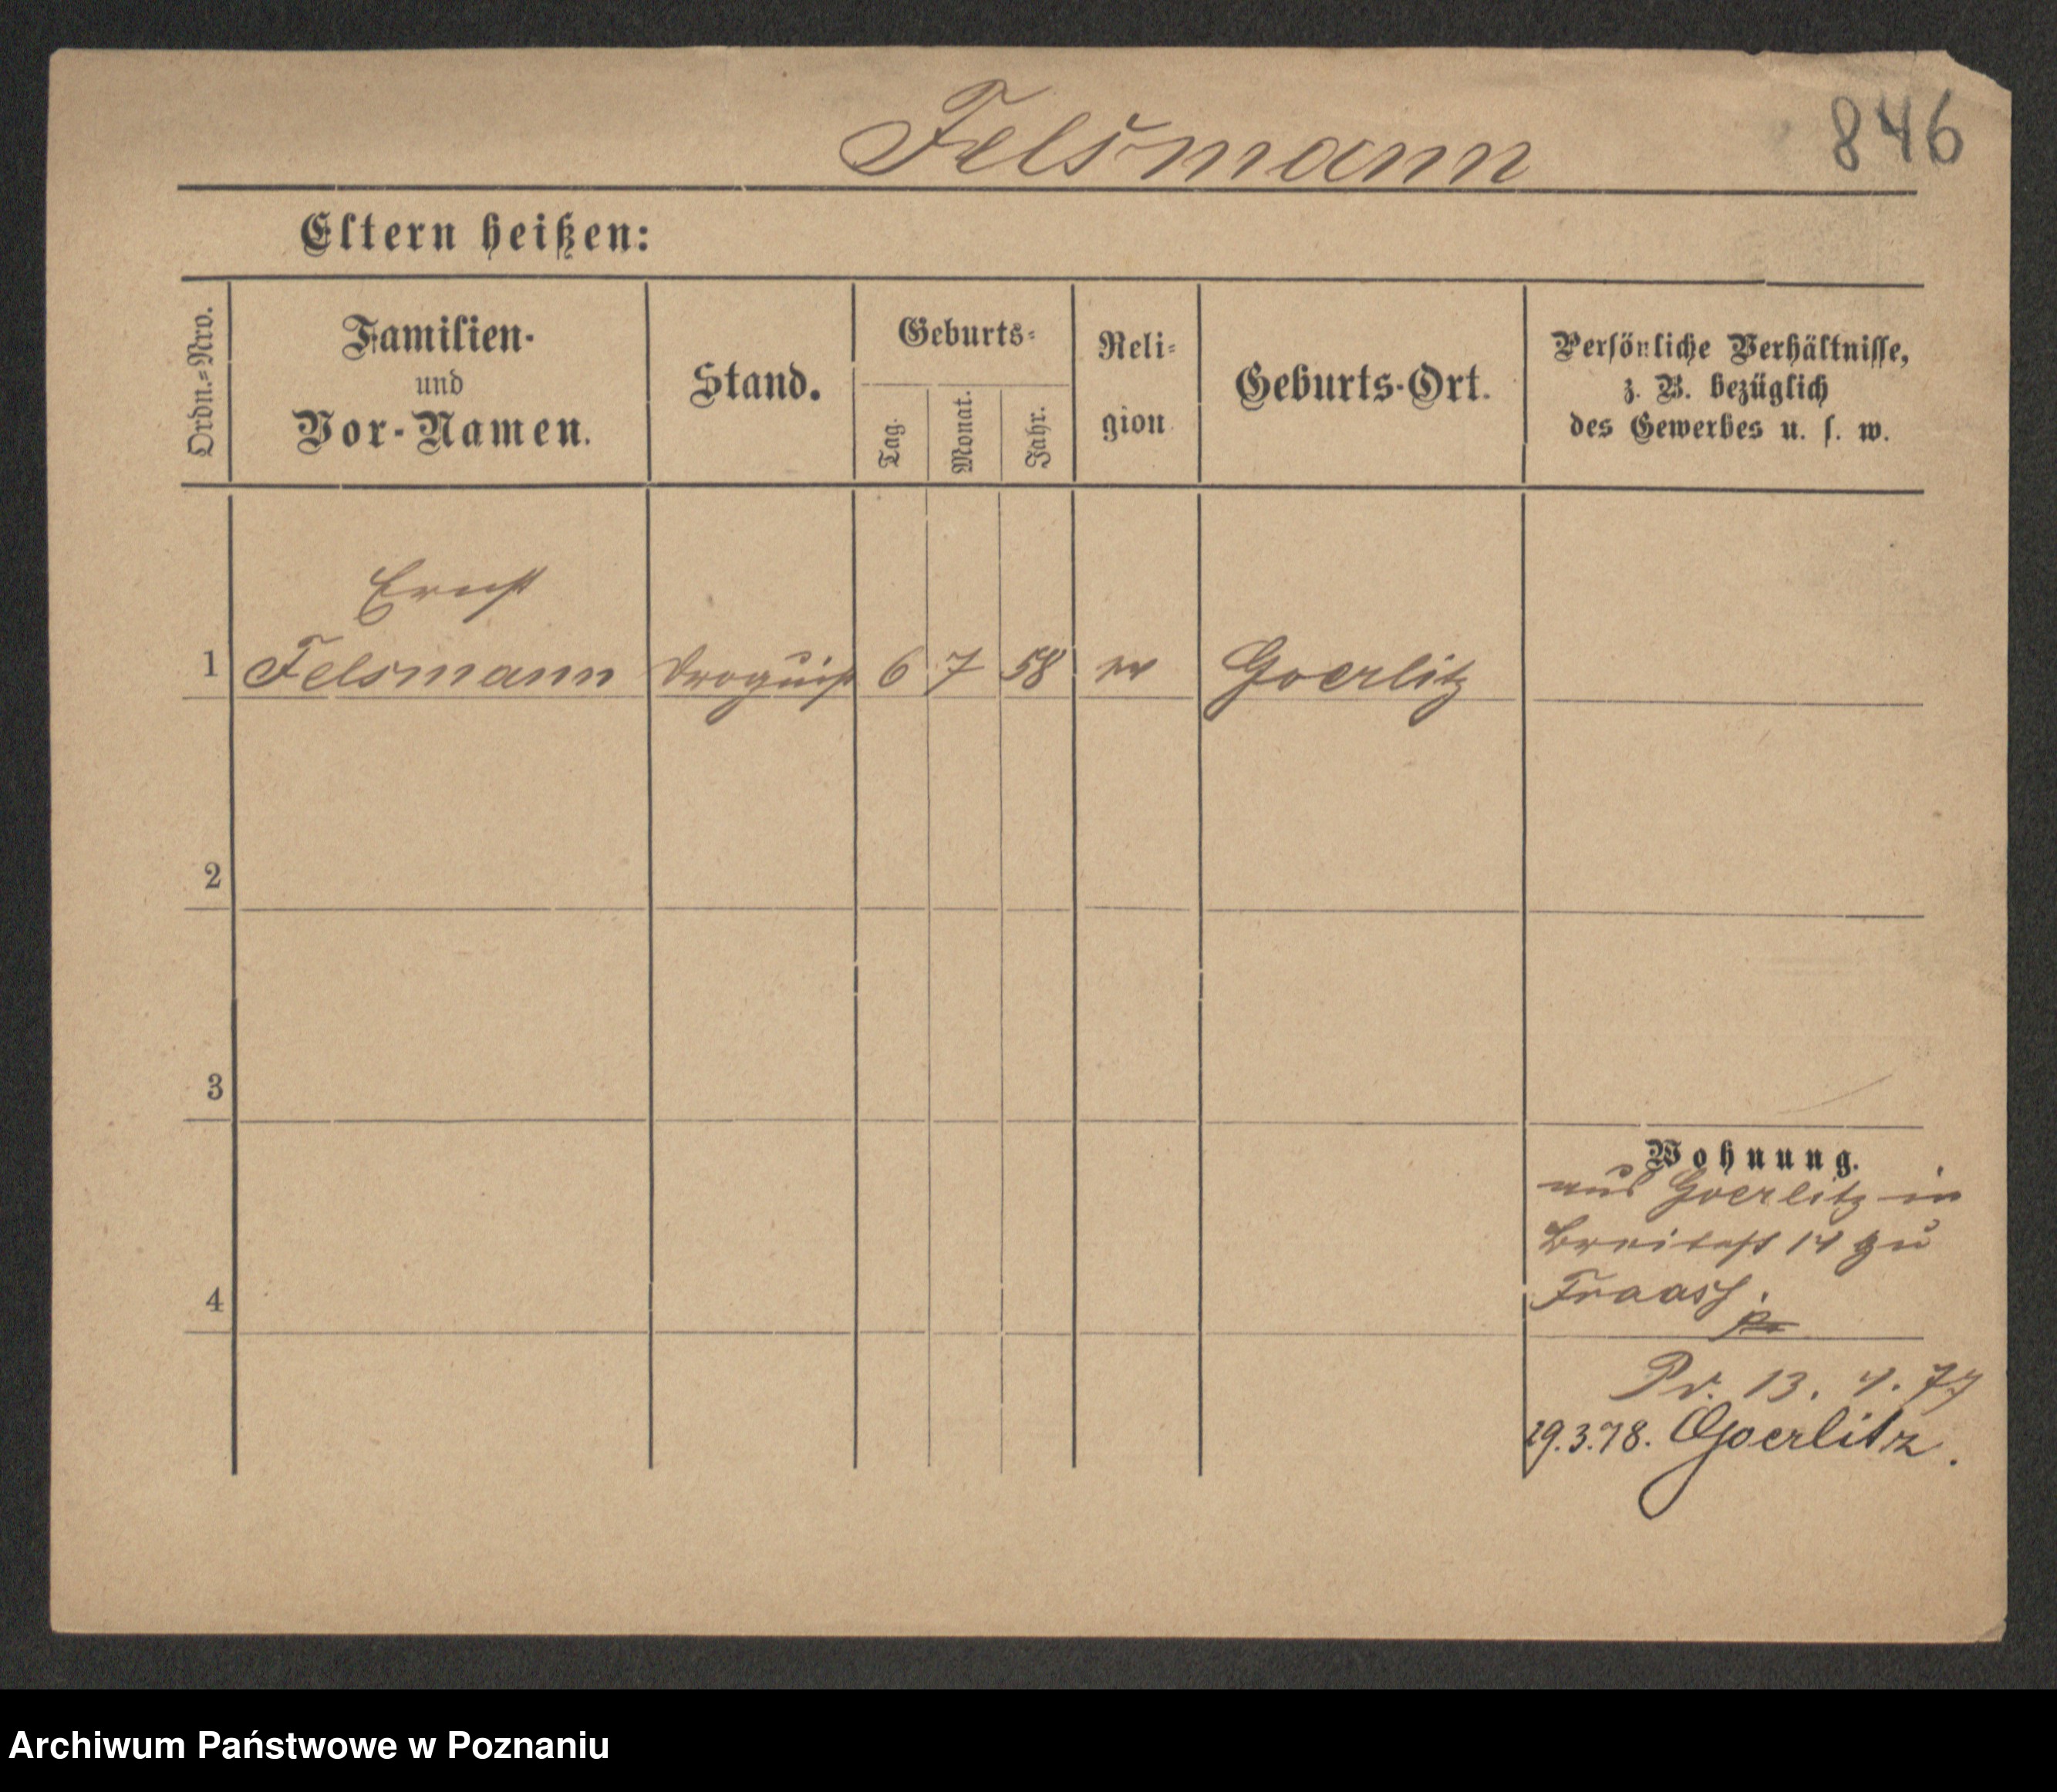 Felsmann
846
Eltern heißen:
Ordn.=Nro.
Familien-
und
Vor-Namen.
Stand.
Geburts=
Tag.
Monat.
Jahr.
Reli=
gion
Geburts-Ort.
Persönliche Verhältnisse,
z. B. bezüglich
des Gewerbes u. s. w.
Ernst
1 Felsmann Droguist 6 7 58 Goerlitz
2
3
4
Wohnung.
aus Goerlitz in
Breitest 14 zu
Fraass
Pd. 13. 4. 77
29.3.78. Goerlitz.
Archiwum Państwowe w Poznaniu